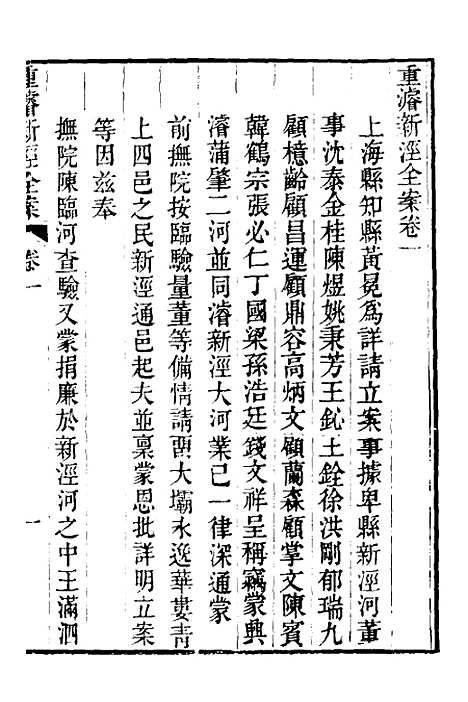 重濬新涇全案卷一
上海縣知縣黃冕爲詳請立案事據卑縣新涇河董
事沈泰金桂陳煜姚秉芳王鈊土銓徐洪剛郁瑞九
顧檍齡顧昌運顧鼎容高炳文顧蘭森顧掌文陳賓
韓鶴宗張必仁丁國梁孫浩廷錢文祥呈稱竊蒙興
濬蒲肇二河並同濬新涇大河業已一律深通蒙
前撫院按臨驗量董等備情請畱大壩永逸華婁靑
上四邑之民新涇通邑起夫並稟蒙恩批詳明立案
等因兹奉
撫院陳臨河查驗又蒙捐廉於新涇河之中王滿泗
重濬新涇全案
卷一
一